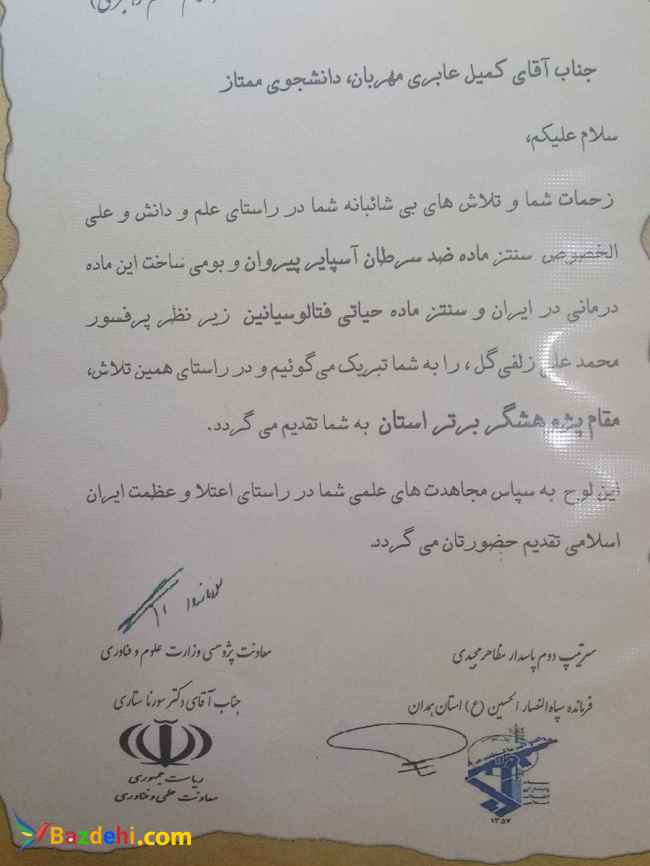 جناب آقای کمیل عابری مهربان، دانشجوی ممتاز
سلام علیکم،
زحمات شما و تلاش های بی شائبانه شما در راستای علم و دانش و علی
الخصوص سنتز ماده ضد سرطان آسپایر پیروان و بومی ساخت این ماده
درمانی در ایران و سنتز ماده حیاتی فتالوسیانین زیر نظر پرفسور
محمد علی زلفی گل، را به شما تبریک می گوئیم و در راستای همین تلاش،
مقام پژوهشگر برتر استان به شما تقدیم می گردد.
این لوح به سپاس مجاهدت های علمی شما در راستای اعتلا و عظمت ایران
اسلامی تقدیم حضورتان می گردد.
سرتیپ دوم پاسدار مظاهر مجیدی
فرمانده سپاه انصار الحسین (ع) استان همدان
۱۳۵۷
معاونت پژوهشی وزارت علوم و فناوری
جناب آقای دکتر سورنا ستاری
ریاست جمهوری
معاونت علمی و فناوری
Bazdehi.com